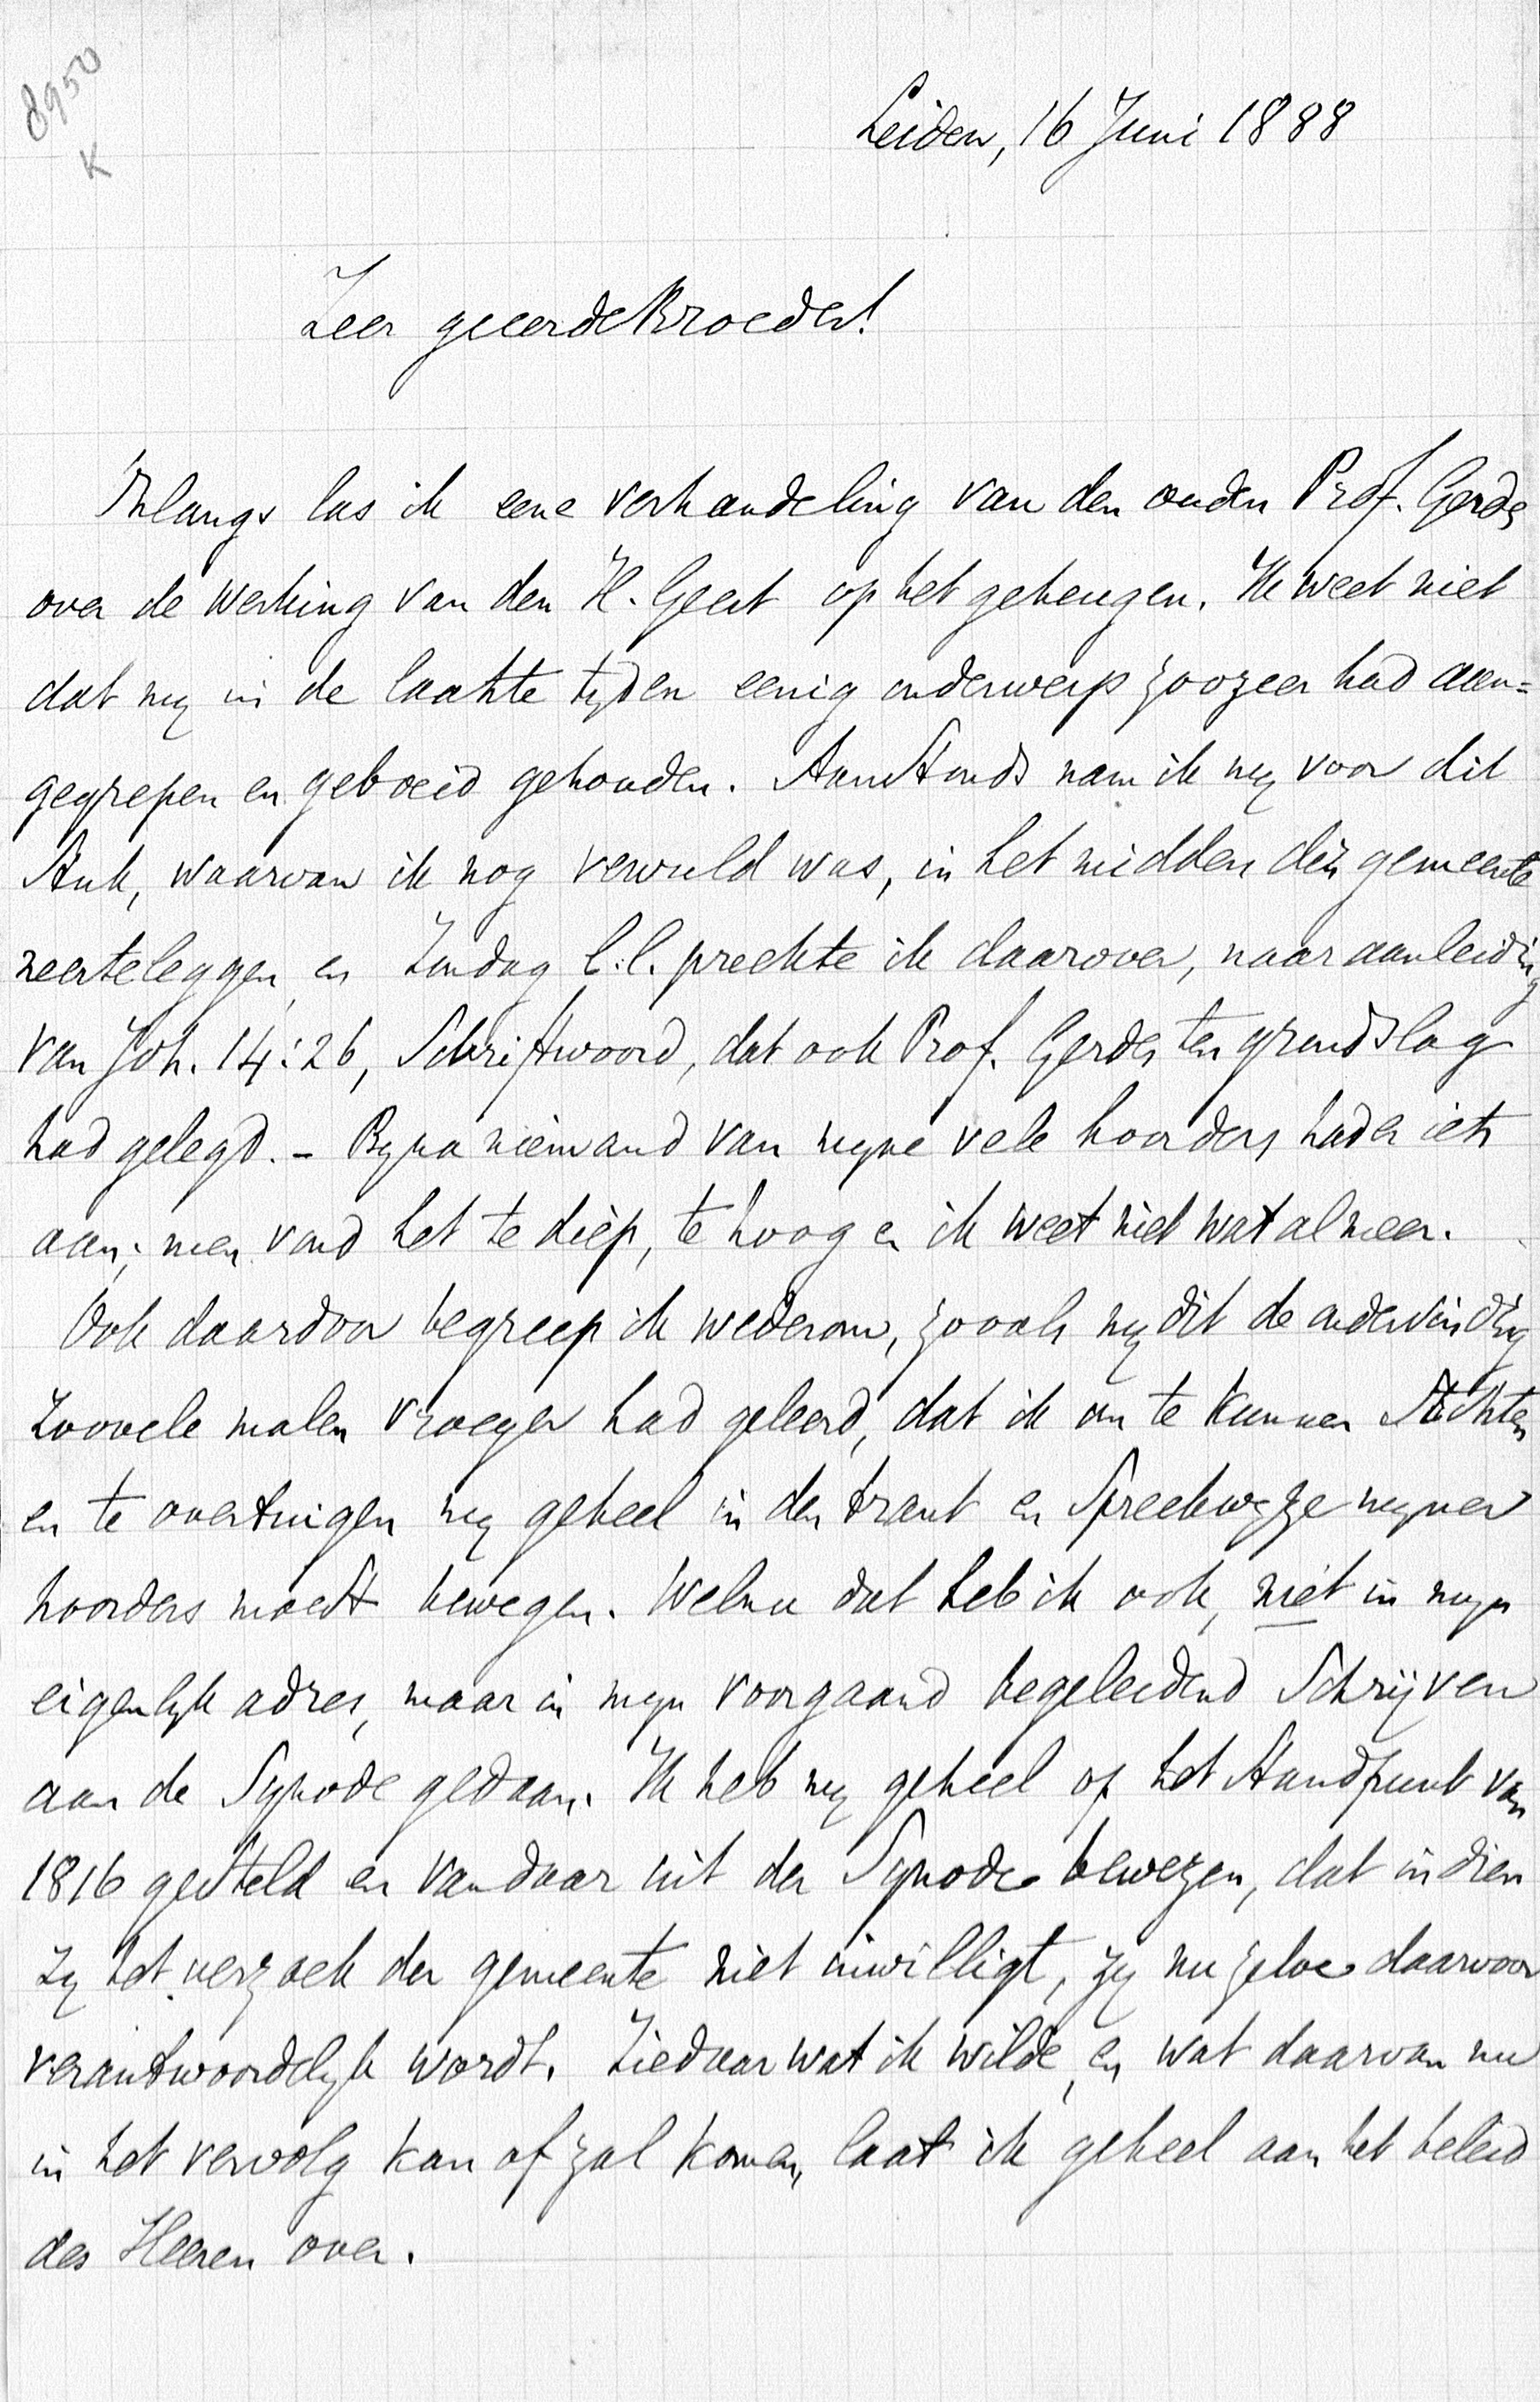 8950
K
Leiden, 16 Juni 1888
Zeer geeerde Broeder!
Onlangs las ik eene verhandeling van den ouden Prof. Gerdes
over de werking van den H. Geest op het geheugen. Ik weet niet
dat mij in de laatste tijden eenig onderwerp zoozeer had aan=
gegrepen en geboeid gehouden. Aanstonds nam ik mij voor dit
stuk, waarvan ik nog vervuld was, in het midden der gemeente
neerteleggen, en Zondag l.l. preekte ik daarover, naar aanleiding
van Joh. 14:26, Schriftwoord, dat ook Prof. Gerdes ten grondslag
had gelegd. - Bijna niemand van mijne vele hoorders had er iets
aan; men vond het te diep, te hoog en ik weet niet wat al meer.
Ook daardoor begreep ik wederom, zooals mij dit de ondervinding
zoovele malen vroeger had geleerd, dat ik om te kunnen stichten
en te overtuigen mij geheel in den trant en spreekwijze mijner
hoorders moest bewegen. Welnu dat heb ik ook, niet in mijn
eigenlijk adres, maar in mijn voorgaand begeleidend schrijven
aan de Synode gedaan. Ik heb mij geheel op het standpunt van
1816 gesteld en van daar uit der Synode bewezen, dat indien
zij het verzoek der gemeente niet inwilligt, zij nu zelve daarvoor
verantwoordelijk wordt. Ziedaar wat ik wilde, en wat daarvan nu
in het vervolg kan of zal komen, laat ik geheel aan het beleid
des Heeren over.